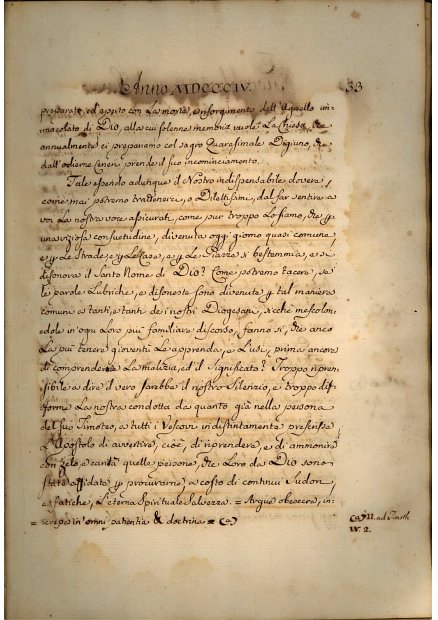 Anno MDCCCIV. 33
preparato, ed aperto con la morte, e risorgimento dell'Agnello im-
macolato di Dio, alla cui solenne memoria vuole La Chiesa, che
annualmente ci prepariamo col Sagro Quaresimale Digiuno, che
dall'odierne Ceneri prende il suo incominciamento.
Tale essendo adunque il Nostro indispensabile dovere,
come mai potremo trattenerci, o Dilettissimi, dal far sentire a
voi La nostra voce assicurati, come pur troppo Lo siamo, che p
una viziosa consuetudine, divenuta oggi giorno quasi comune
e p Le strade, e p Le Case, e p Le Piazze si bestemmia, e si
disonora il Santo Nome di Dio? Come potremo tacere, se
le parole Lubriche, e disoneste sono divenute p tal maniera
comuni a tanti, e tanti de' nostri Diogesani, sicchè mescolan-
dole in ogni Loro più familiare discorso, fanno sì, che anco
La più tenera gioventù Le apprenda, e L'usi, prima ancora
di comprenderne La malizia, ed il Significato? Troppo ripren-
sibile a dire il vero sarebbe il nostro Silenzio, e troppo dif-
forme La nostra condotta da quanto già nella persona
del suo Timoteo, a tutti i Vescovi indistintamente prescrisse
L'Apostolo di avvertire, cioè, di riprendere, e di ammonire
con zelo, e carità quelle persone, che Loro da Dio sono
state affidate p procurarne, a costo di continui Sudori,
e fatiche, L'eterna Spirituale Salvezza = Argue obsecra, in-
= increpa in omni patientia & doctrina = (a)
(a) II. ad Timoth
IV. 2.